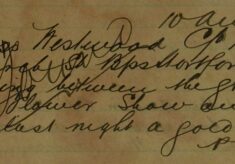 10 Au
ss Westwood
St Bps Stortfor
ing between the G
Flower Show an
last night a gold